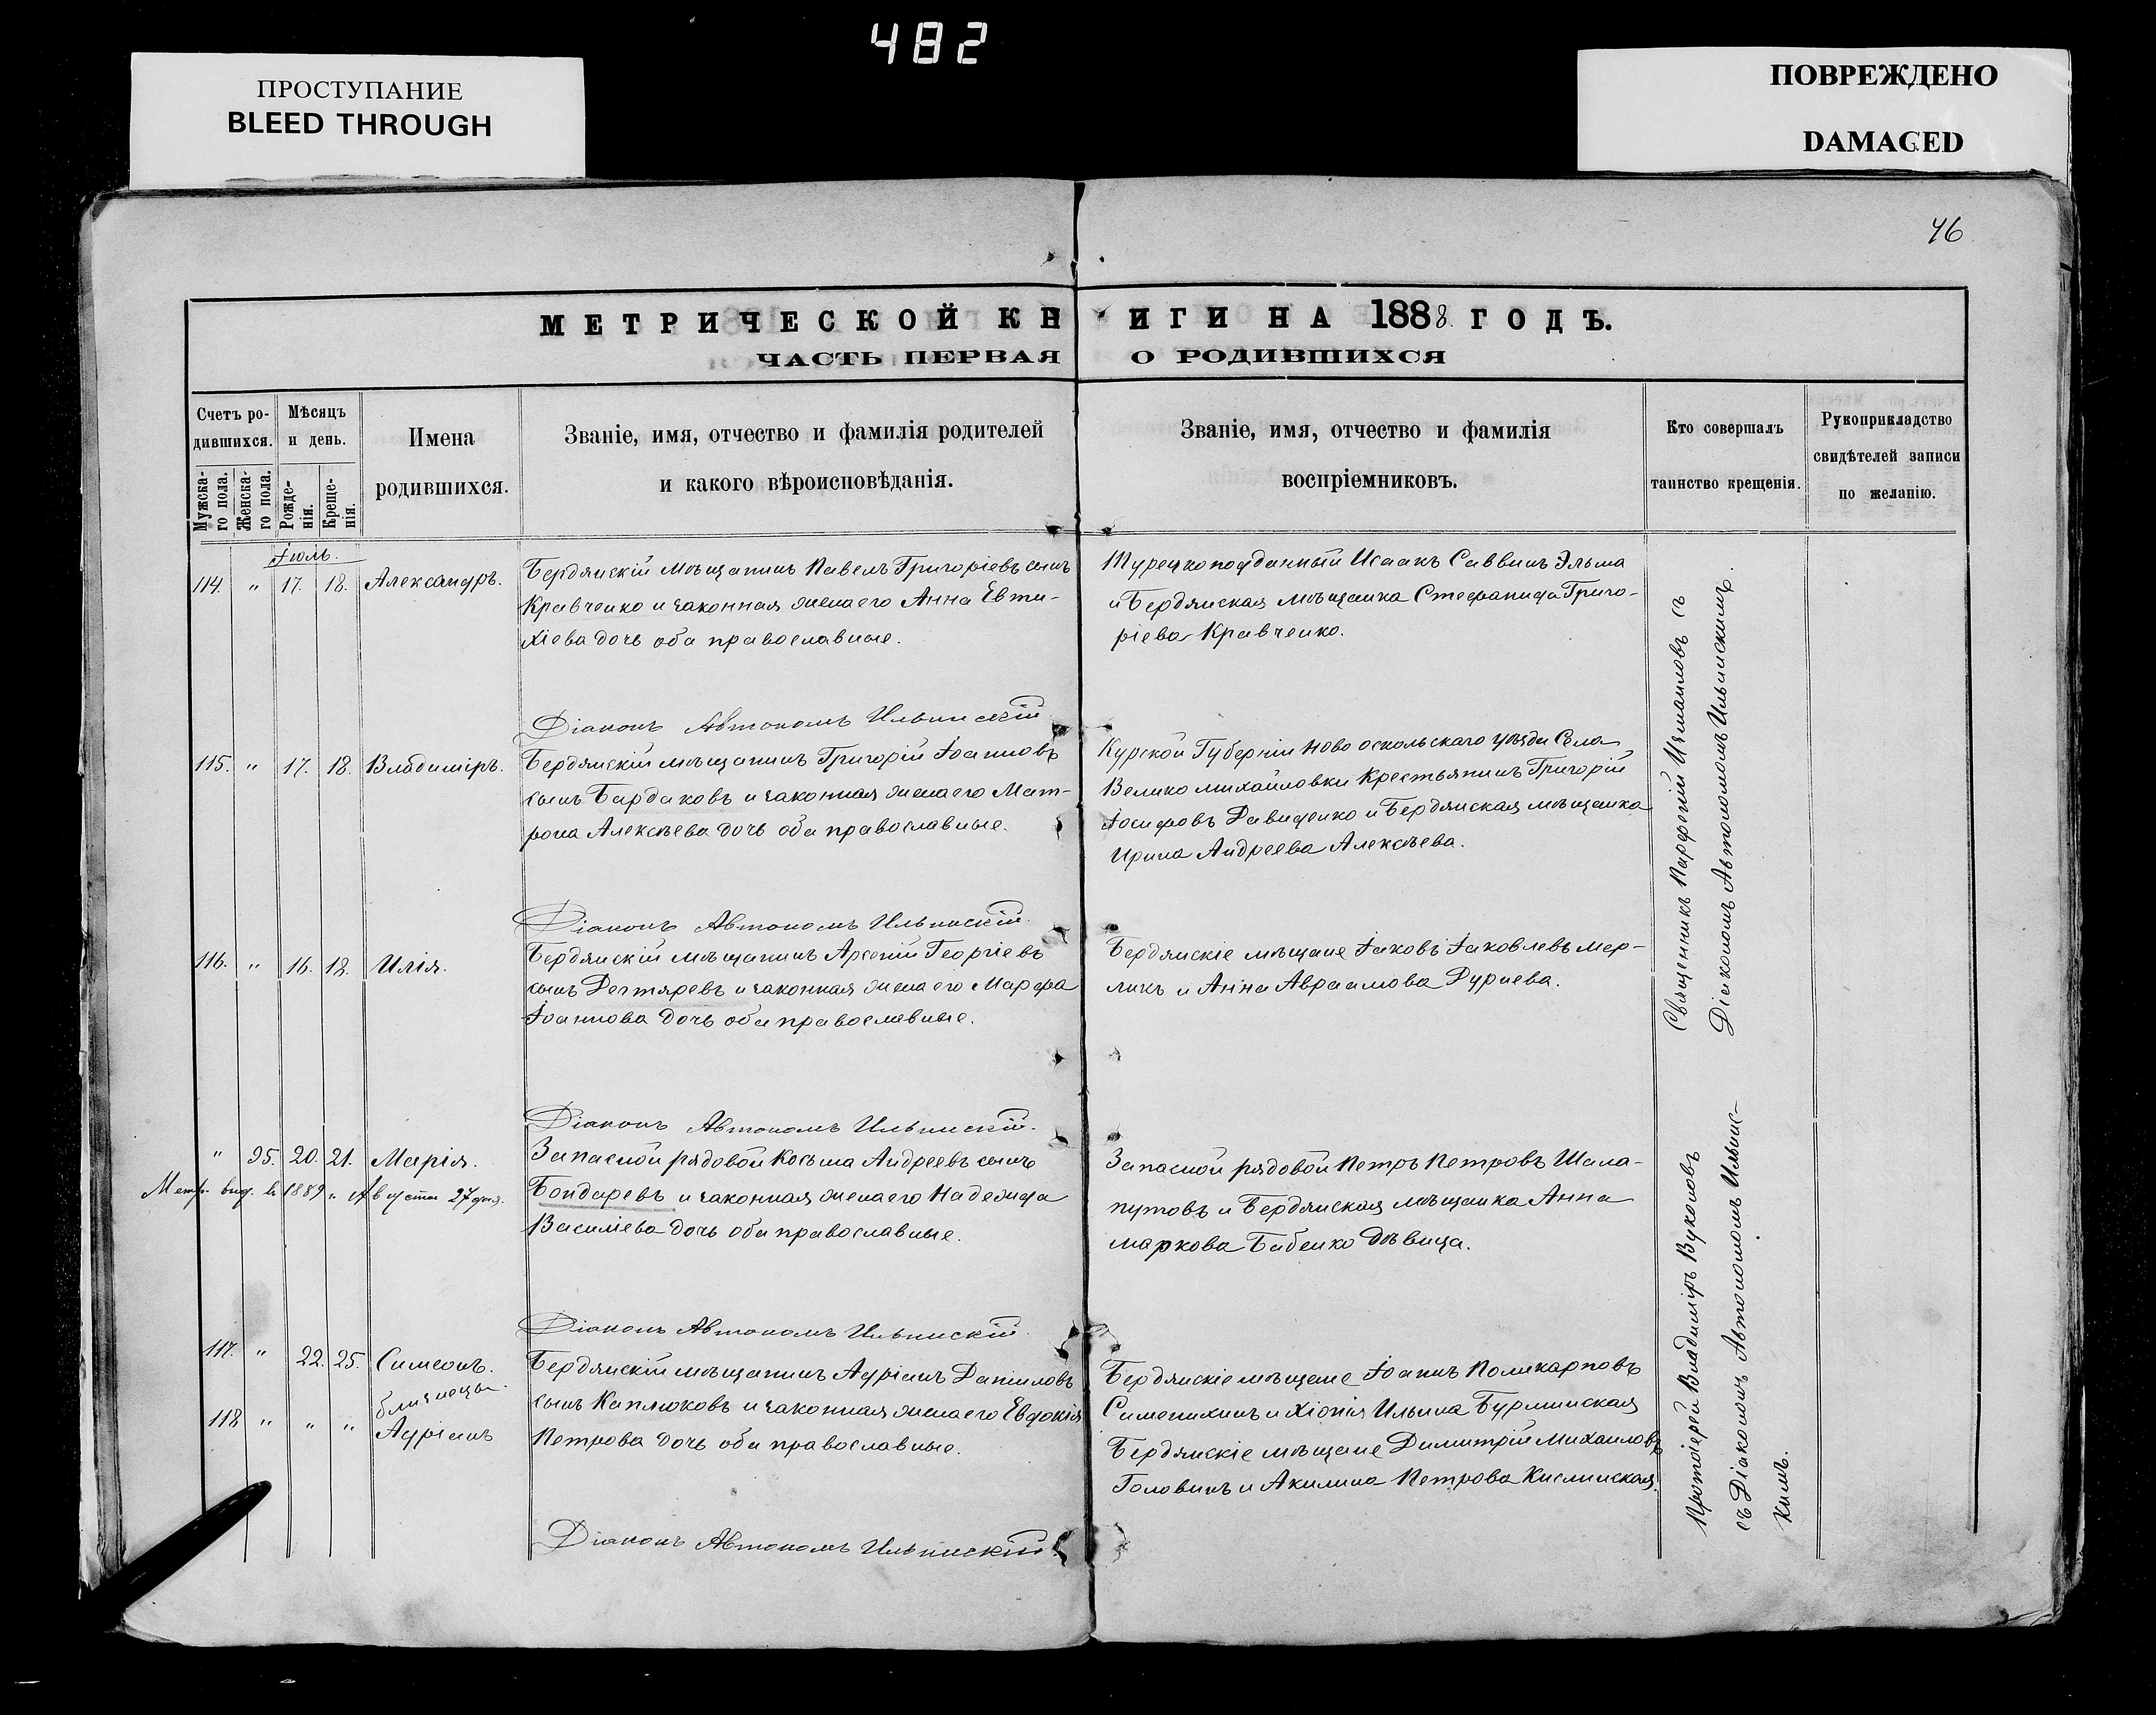 482
ПРОСТУПАНИЕ
BLEED THROUGH
ПОВРЕЖДЕНО
DAMAGED
46
МЕТРИЧЕСКОЙ КНИГИ НА 1888 ГОДЪ.
ЧАСТЬ ПЕРВАЯ О РОДИВШИХСЯ
Счетъ ро-
дившихся.
Мужска-
го пола.
Женска-
го пола.
Мѣсяцъ
и день.
Рожде-
нія.
Креще-
нія.
Имена
родившихся.
Званіе, имя, отчество и фамилія родителей
и какого вѣроисповѣданія.
Званіе, имя, отчество и фамилія
воспріемниковъ.
Кто совершалъ
таинство крещенія.
Рукоприкладство
свидѣтелей записи
по желанію.
Іюль.
114. " 17. 18. Александръ.
Бердянскій мѣщанинъ Павелъ Григоріевъ сынъ
Кравченко и законная жена его Анна Евти-
хіева дочь оба православные.
Турецкоподданный Исаакъ Саввинъ Эльма
и Бердянская мѣщанка Стефанида Григо-
ріева Кравченко.
Діаконъ Автономъ Ильинскій
115. " 17. 18. Владиміръ.
Бердянскій мѣщанинъ Григорій Іоанновъ
сынъ Бардаковъ и законная жена его Мат-
рона Алексѣева дочь оба православные.
Курской Губерніи Ново оскольскаго уѣзда Села
Велико михайловки Крестьянинъ Григорій
Іосифовъ Давиденко и Бердянская мѣщанка
Ирина Андреева Алексѣева.
Діаконъ Автономъ Ильинскій.
116. " 16. 18. Илія.
Бердянскій мѣщанинъ Арсеній Георгіевъ
сынъ Дегтяревъ и законная жена его Марфа
Іоаннова дочь оба православные.
Бердянскіе мѣщане Іаковъ Іаковлевъ Мер-
ликъ и Анна Авраамова Дуриева.
Діаконъ Автономъ Ильинскій.
Священникъ Парфеній Измаиловъ съ
Діакономъ Автономомъ Ильинскимъ.
" 95. 20. 21. Марія.
Метр. выд. въ 1889 г. Августа 27 дня.
Запасной рядовой Косьма Андреевъ сынъ
Бондаревъ и законная жена его Надежда
Василіева дочь оба православные.
Запасной рядовой Петръ Петровъ Шала-
путовъ и Бердянская мѣщанка Анна
маркова Бабенко дѣвица.
Діаконъ Автономъ Ильинскій.
117. " 22. 25. Симеонъ.
близнецы.
118 " " " Адріанъ
Бердянскій мѣщанинъ Адріанъ Даніиловъ
сынъ Каплюковъ и законная жена его Евдокія
Петрова дочь оба православные.
Бердянскіе мѣщане Іоаннъ Поликарповъ
Сименихинъ и Хіонія Ильина Бурминская
Бердянскіе мѣщане Димитрій Михаиловъ
Головинъ и Акилина Петрова Кислинская.
Діаконъ Автономъ Ильинскій.
Протоіерей Владиміръ Вуколовъ
съ Діакономъ Автономомъ Ильинс-
кимъ.